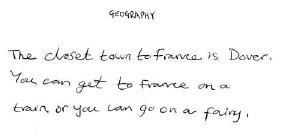 GEOGRAPHY
The closet town to france is Dover.
You can get to france on a
train or you can go on a fairy.